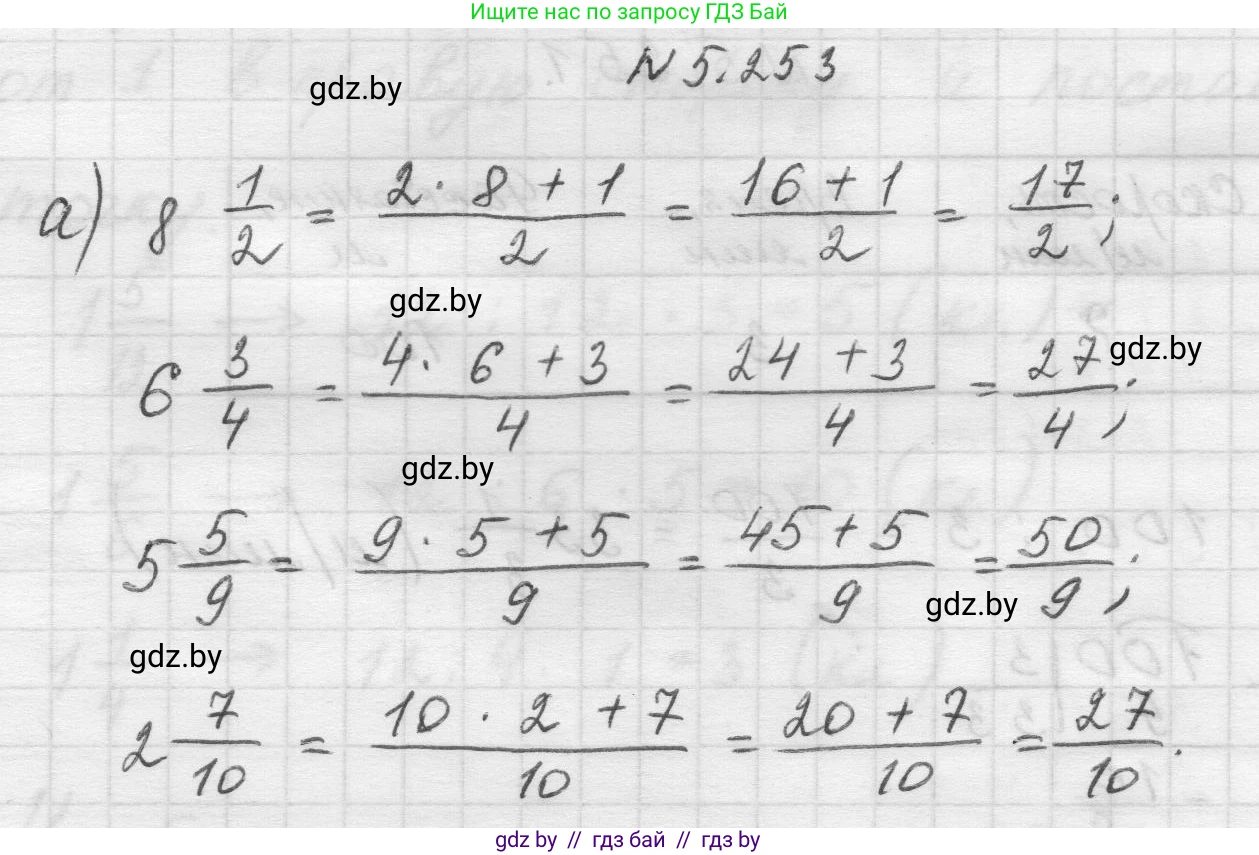 Ищите нас по запросу ГДЗ Бай
N 5.253
gdz.by
а) 8 1/2 = (2 · 8 + 1)/2 = (16 + 1)/2 = 17/2;
gdz.by
6 3/4 = (4 · 6 + 3)/4 = (24 + 3)/4 = 27/4;
gdz.by
gdz.by
5 5/9 = (9 · 5 + 5)/9 = (45 + 5)/9 = 50/9;
gdz.by
gdz.by
2 7/10 = (10 · 2 + 7)/10 = (20 + 7)/10 = 27/10.
gdz by // гдз бай // гдз by